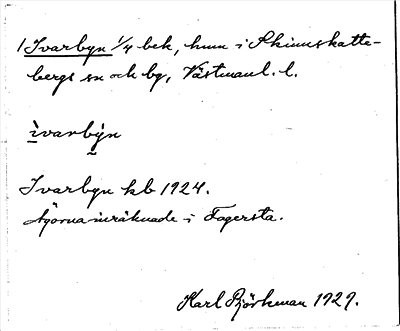 1 Ivarbyn 1/4 bek, hmn i Skinnskatte-
bergs sn och bg, Västmanl. l.
ìvarbýn
Ivarbyn kb 1924.
Ägorna inräknade i Fagersta.
Karl Björkman 1929.